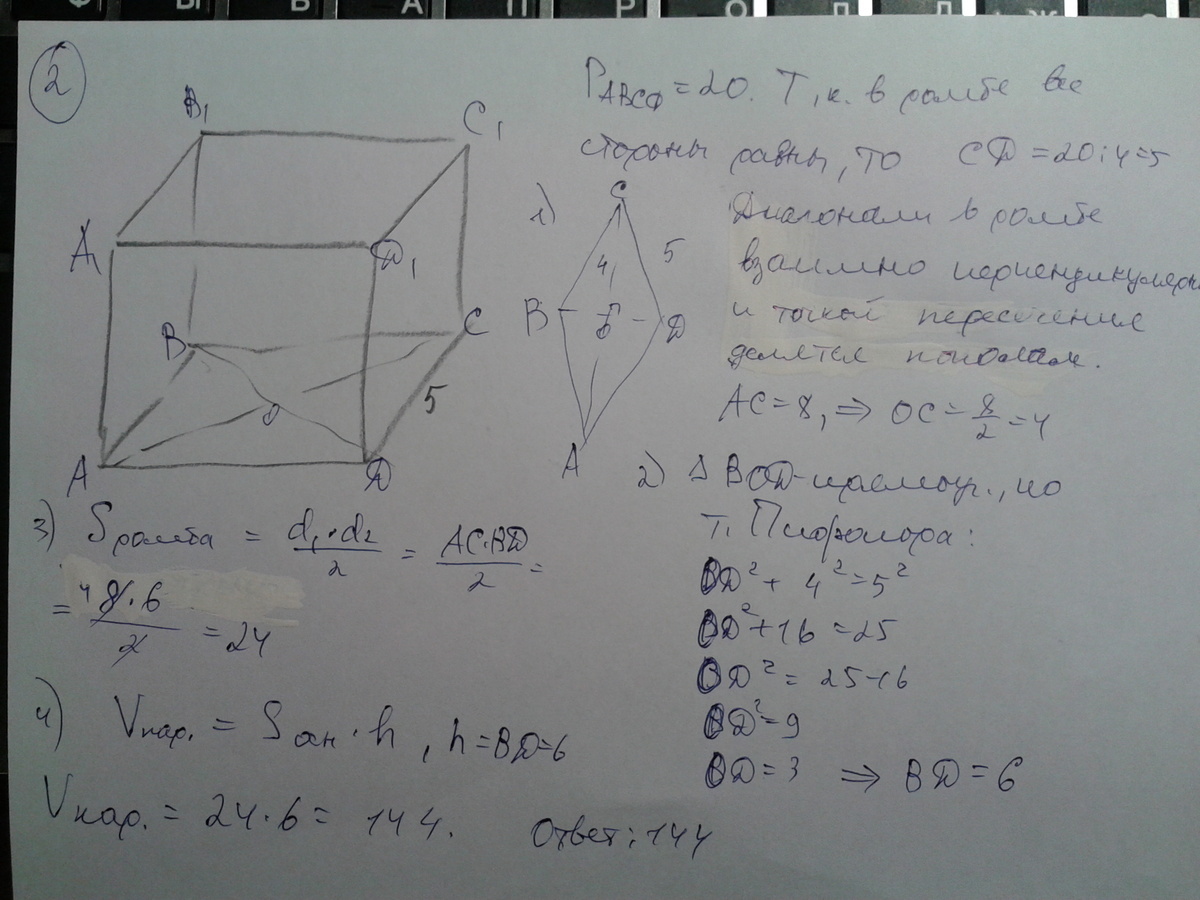 2
P ABCD = 20. Т.к. в ромбе все
стороны равны, то CD = 20:4=5
B₁
C₁
A₁
D₁
B
C
O
5
A
D
1)
C
4
5
B
O
D
A
Диагонали в ромбе
взаимно перпендикулярны
и точкой пересечения
делятся пополам.
AC = 8, ⇒ OC = 8/2 = 4
2) Δ BOD - прямоуг., по
т. Пифагора:
OD² + 4² = 5²
OD² + 16 = 25
OD² = 25-16
OD² = 9
OD = 3 ⇒ BD = 6
3) S ромба = d₁·d₂/2 = AC·BD/2 =
= 8·6/2 = 24
4
4) V пар. = S осн · h, h=BD=6
V пар. = 24·6 = 144.
Ответ: 144